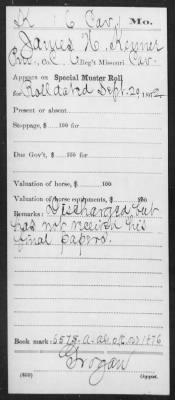 K 6 Cav. Mo.
James H. Kesner
Pvt., Co. C, 6 Reg't Missouri Cav.
Appears on Special Muster Roll
for Roll dated Sept. 29, 186
Present or absent
Stoppage, $ 100 for
Due Gov't, $ 100 for
Valuation of horse, $ 100
Valuation of horse equipments, $ 100
Remarks: Discharged but
has not received his
final papers.
Book mark: 6578-a-
Grogan
Copyist.